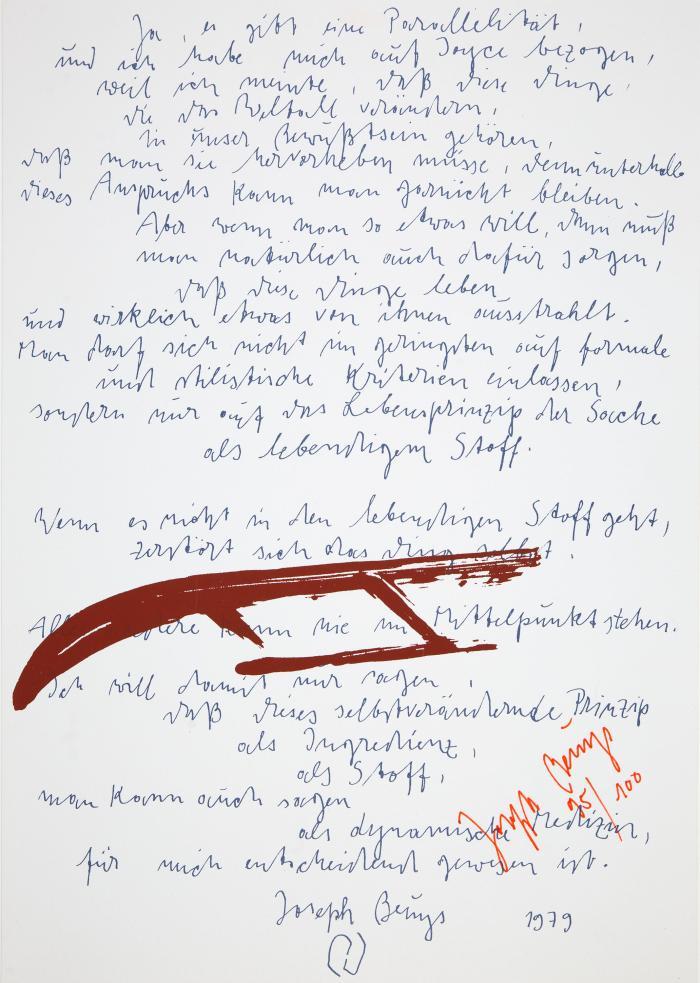 Ja, es gibt eine Parallelität,
und ich habe mich auf Joyce bezogen,
weil ich meinte, daß diese Dinge,
die das Weltall verändern,
in unser Bewußtsein gehören,
daß man sie hervorheben müsse, denn unterhalb
dieses Anspruchs kann man garnicht bleiben.
Aber wenn man so etwas will, dann muß
man natürlich auch dafür sorgen,
daß diese Dinge leben
und wirklich etwas von ihnen ausstrahlt.
Man darf sich nicht im geringsten auf formale
und stilistische Kriterien einlassen,
sondern nur auf das Lebensprinzip der Sache
als lebendigem Stoff.
Wenn es nicht in den lebendigen Stoff geht,
zerstört sich das Ding selbst.
kann nie im Mittelpunkt stehen.
Ich will damit nur sagen,
daß dieses selbstverändernde Prinzip
als Ingredienz,
als Stoff,
man kann auch sagen
als dynamische Medizin,
für mich entscheidend gewesen ist.
Joseph Beuys 1979
Joseph Beuys
95/100